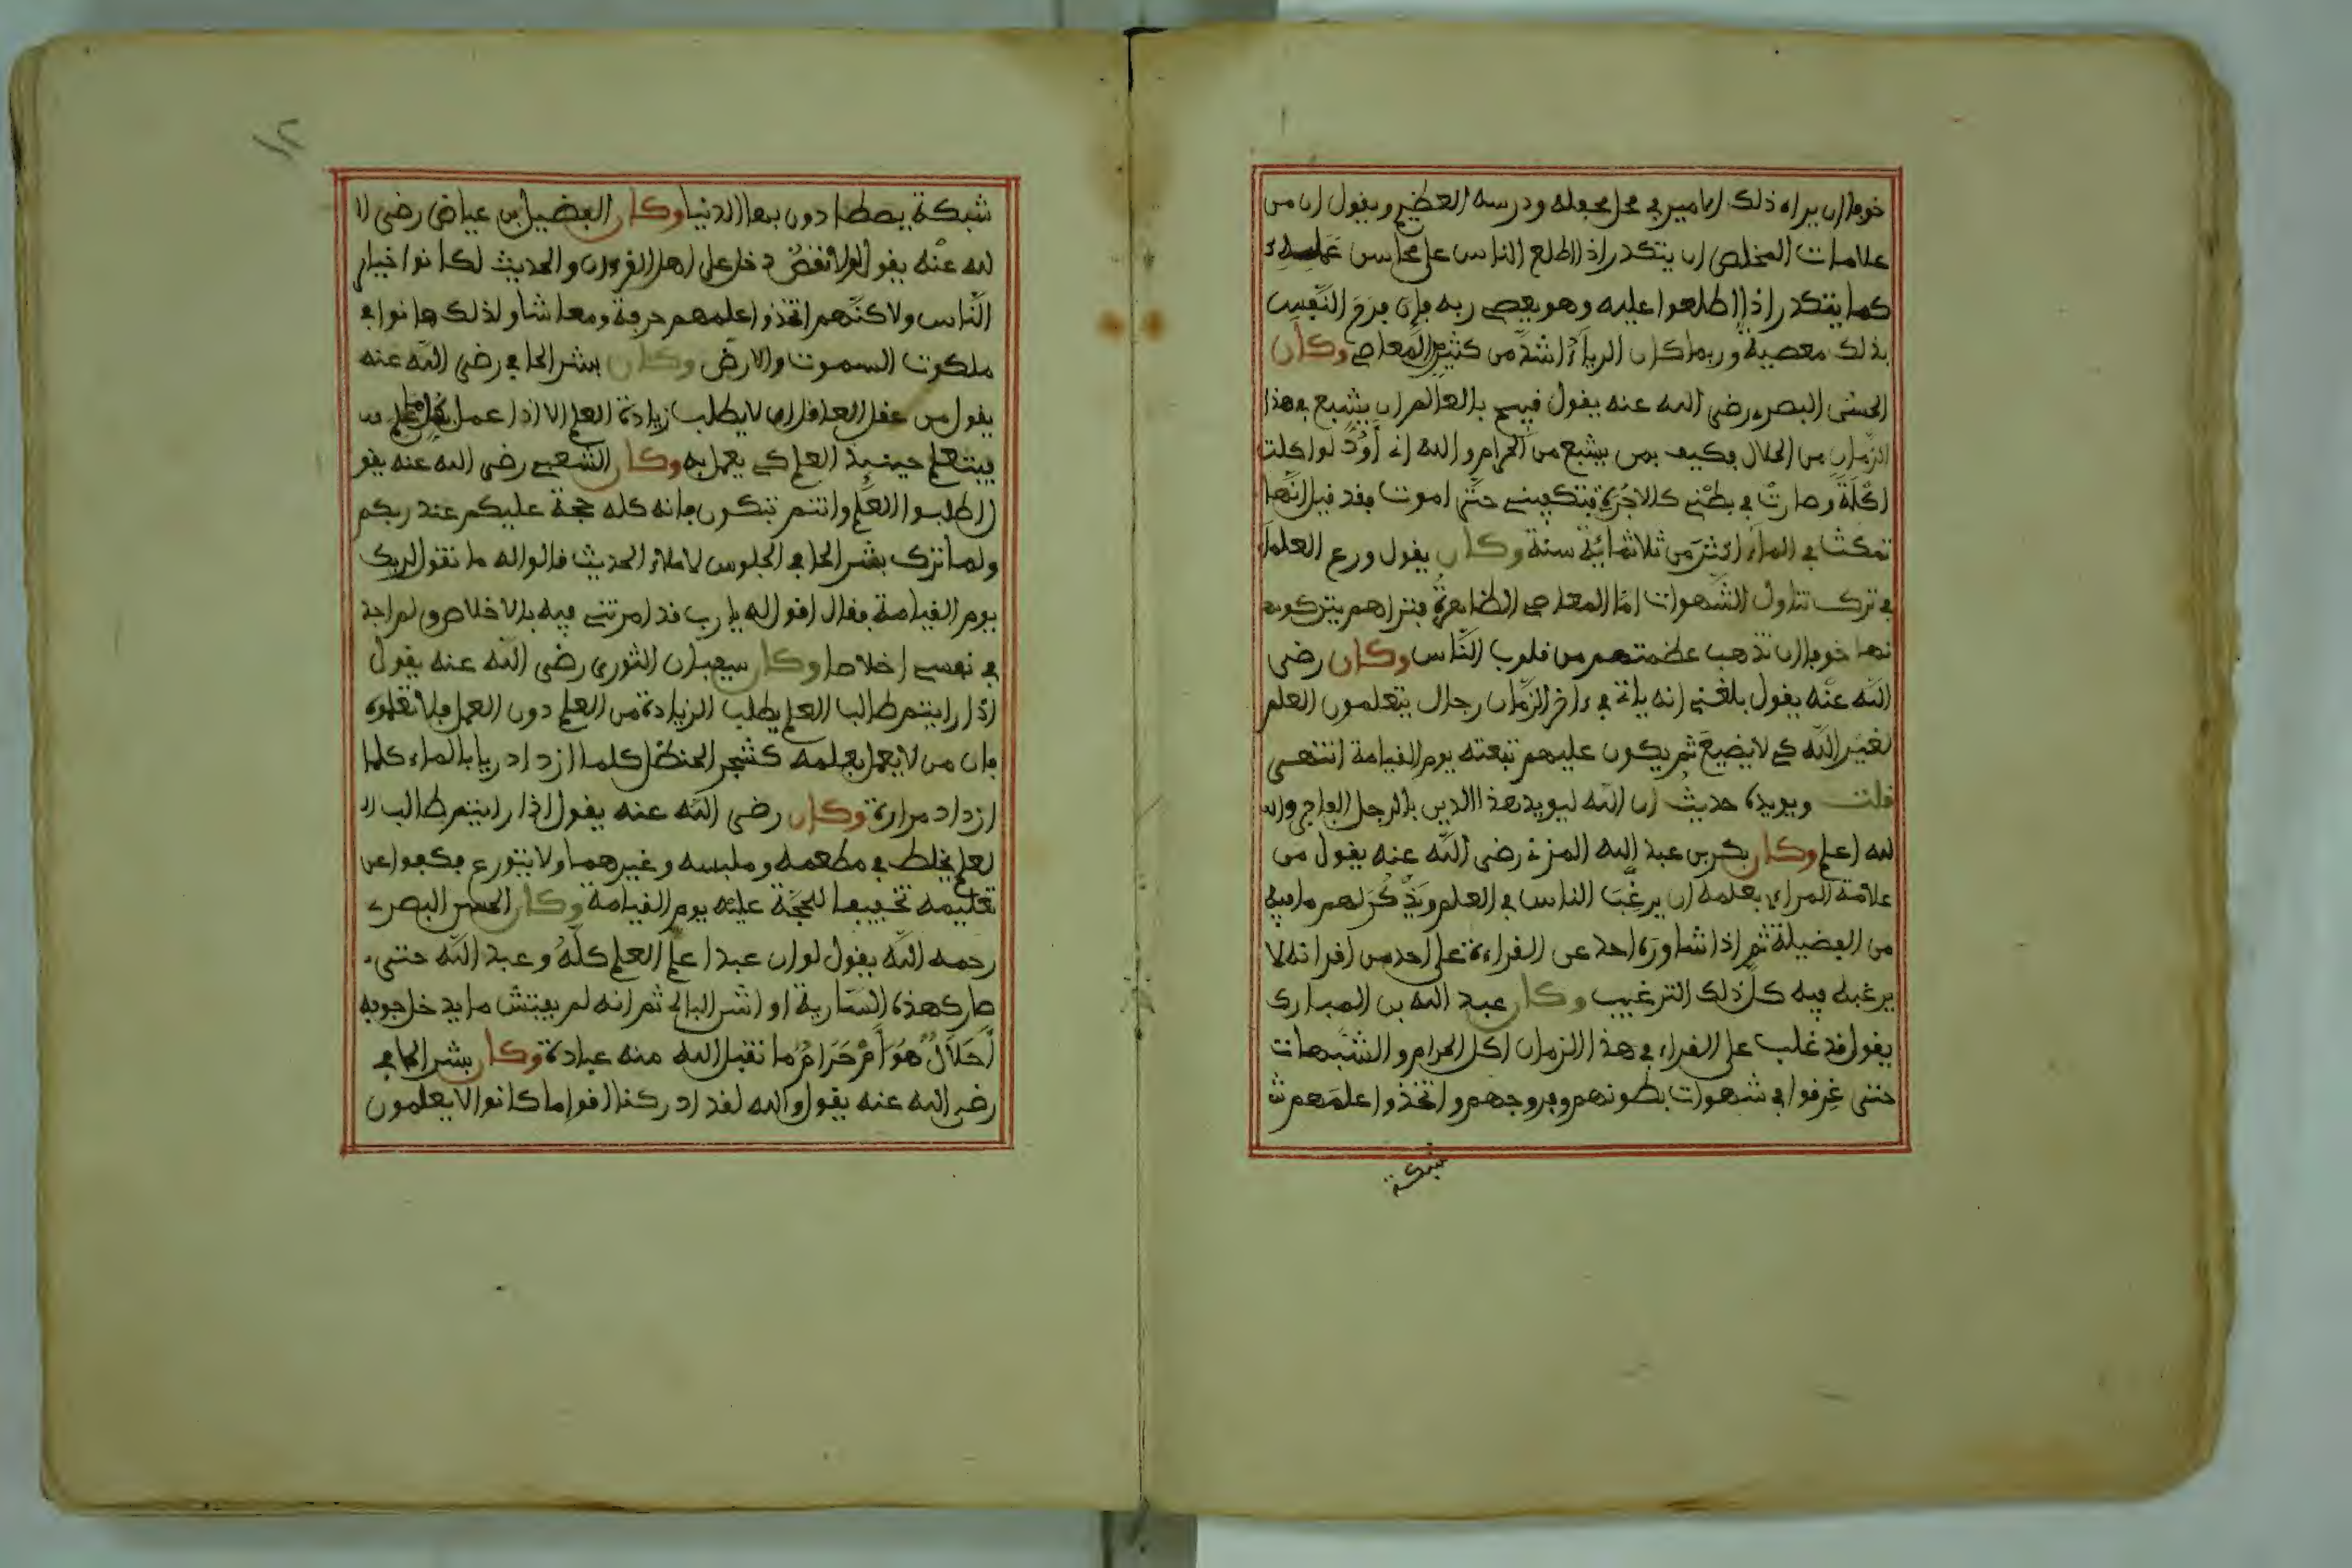 خوفا ان يراه ذلك الامير في محل محفله ودرسه العظيم ويقول ان من
علامات المخلص ان يتكدر اذا اطلع الناس على محاسن عمله
كما يتكدر اذا اطلعوا عليه وهو يعصي ربه فإن فرح النفس
بذلك معصية وربما كان الرياء اشد من كثير المعاصي وكان
الحسن البصري رضي الله عنه يقول قبيح بالعالم ان يشبع في هذا
الزمان من الحلال فكيف بمن يشبع من الحرام والله اني أود لو اكلت
اكلة وصارت في بطني كالاجرة فتكفيني حتى اموت فقد قيل انها
تمكث في الماء اكثر من ثلاثمائة سنة وكان يقول ورع العلماء
في ترك تناول الشهوات اما المعاصي الظاهرة فتراهم يتركو
نها خوفا ان تذهب عظمتهم من قلوب الناس وكان رضي
الله عنه يقول بلغني انه ياتي في ءاخر الزمان رجال يتعلمون العلم
لغير الله كي لا يضيع ثم يكون عليهم تبعته يوم القيامة انتهى
قلت ويويده حديث ان الله ليويد هذا الدين بالرجل الفاجر وا
لله اعلم وكان بكر بن عبد الله المزني رضي الله عنه يقول من
علامة المراءي بعلمه ان يرغب الناس في العلم ويذكر لهم ما فيه
من الفضيلة ثم اذا شاوره احد عن القراءة على احد من اقرانه لا
يرغبه فيه كل ذلك الترغيب وكان عبد الله بن المبارك
يقول قد غلب على القراء في هذا الزمان اكل الحرام والشبهات
حتى غرقوا في شهوات بطونهم وفروجهم واتخذوا علمهم ش
شبكة
شبكة يصطادون بها الدنيا وكان الفضيل بن عياض رضي ا
لله عنه يقول لولا نقص دخل على اهل القرءان والحديث لكانوا خيار
الناس ولاكنهم اتخذوا علمهم حرفة ومعاشا ولذلك هانوا في
ملكوت السموت والارض وكان بشر الحافي رضي الله عنه
يقول من عقل العاقل ان لا يطلب زيادة العلم الا اذا عمل بكل ما علم
فيتعلم حينيذ العلم كي يعمل به وكان الشعبي رضي الله عنه يقو
ل اطلبوا العلم وانتم تبكون فانه كله حجة عليكم عند ربكم
ولما ترك بشر الحافي الجلوس لاملاء الحديث قالوا له ما تقول لربك
يوم القيامة فقال اقول له يا رب قد امرتني فيه بالاخلاص ولم اجد
في نفسي اخلاصا وكان سفيان الثوري رضي الله عنه يقول
اذا رايتم طالب العلم يطلب الزيادة من العلم دون العمل فلا تعلموه
فان من لا يعمل بعلمه كشجر الحنظل كلما ازداد ريا بالماء كلما
ازداد مرارة وكان رضي الله عنه يقول اذا رايتم طالب ا
لعلم يخلط في مطعمه وملبسه وغيرهما ولا يتورع فكفوا عن
تعليمه تخفيفا للحجة عليه يوم القيامة وكان الحسن البصري
رحمه الله يقول لو ان عبدا علم العلم كله وعبد الله حتى
صار كهذه السارية او الشن البالي ثم انه لم يفتش ما يدخل جوفه
أحلال هو أم حرام ما تقبل الله منه عبادة وكان بشر الحافي
رضي الله عنه يقول والله لقد ادركنا اقواما كانوا لا يعلمون
١٢